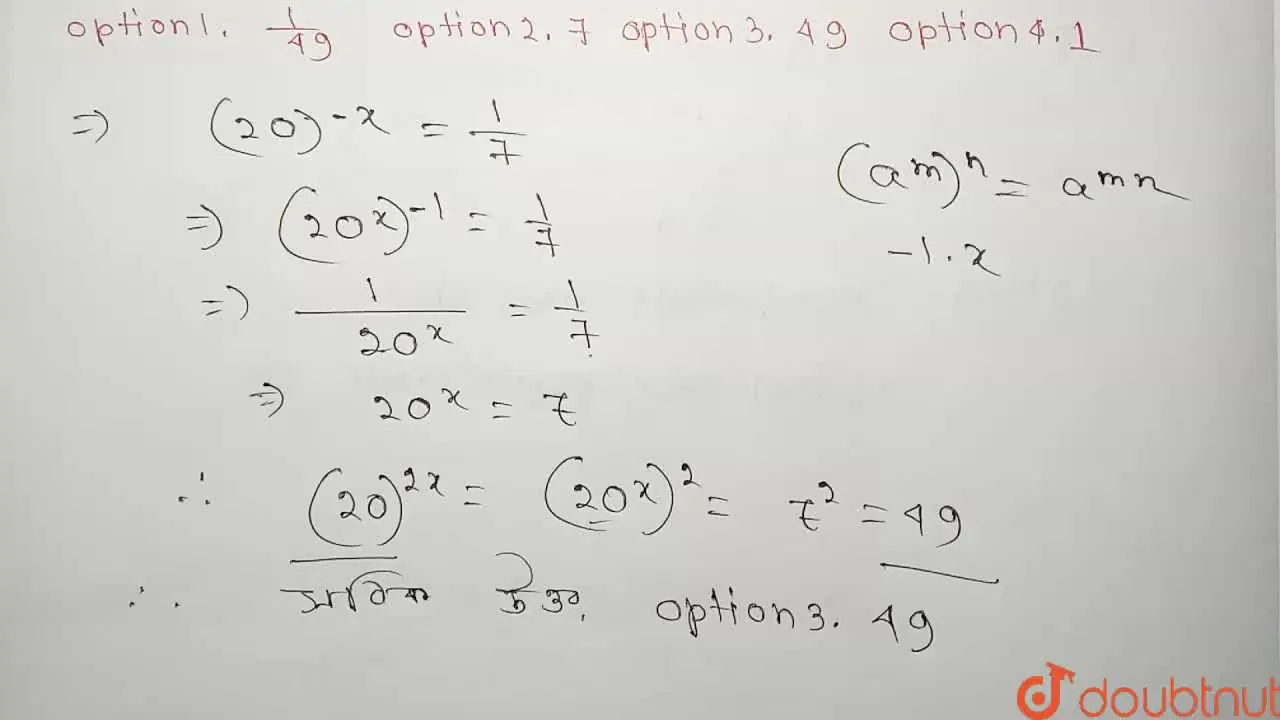 option 1. 1/49 option 2. 7 option 3. 49 option 4. 1
⇒ (20)^-x = 1/7
(a^m)^n = a^mn
⇒ (20^x)^-1 = 1/7
-1.x
⇒ 1/20^x = 1/7
⇒ 20^x = 7
∴ (20)^2x = (20^x)^2 = 7^2 = 49
∴ সঠিক উত্তর, option 3. 49
doubtnut